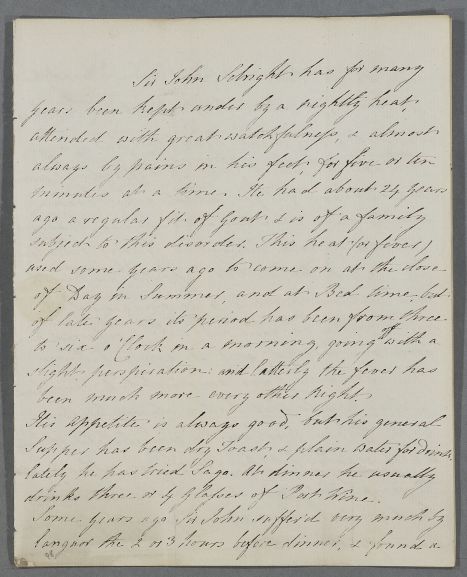 Sir John Sebright has for many
years been kept under by a nightly heat
attended with great watchfulness, & almost
always by pains in his feet, for five or ten
minutes at a time. He had about 24 years
ago a regular fit of Gout & is of a family
subject to this disorder. This heat (or fever)
used some years ago to come on at the close
of Day in Summer, and at Bed time, but
of late years its period has been from three
to six o'Clock in a morning, going off with a
slight perspiration. and latterly the fever has
been much more every other Night.
His appetite is always good, but his general
Supper has been dry Toast & plain water for drink.
lately he has tried Sago. At dinner he usually
drinks three or 4 Glasses of Port Wine.
Some years ago Sir John suffer'd very much by
languor the 2 or 3 hours before dinner, & found a